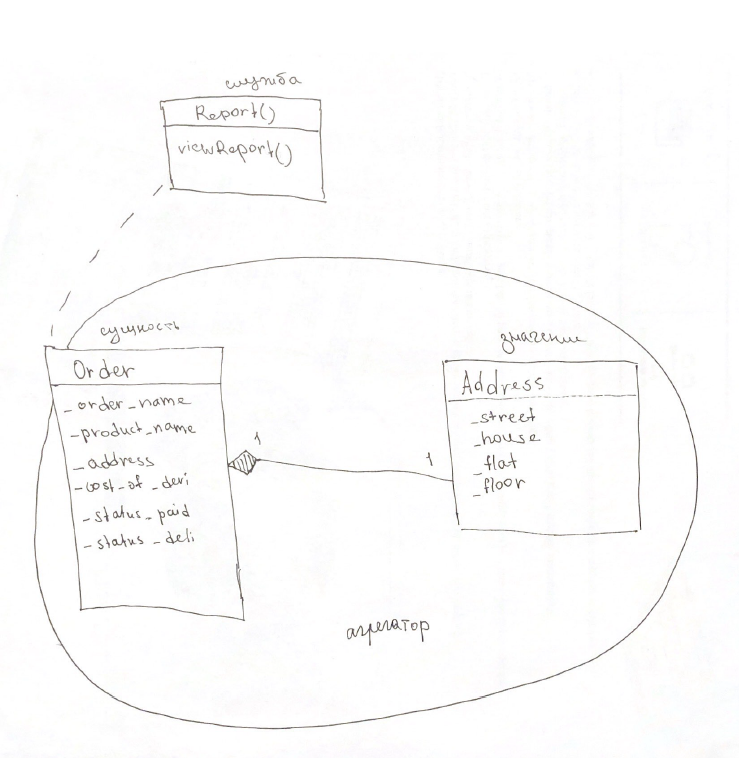 служба
Report()
viewReport()
сущность
Order
_order_name
_product_name
_address
_cost_of_deli
_status_paid
_status_deli
1
1
значение
Address
_street
_house
_flat
_floor
агрегатор